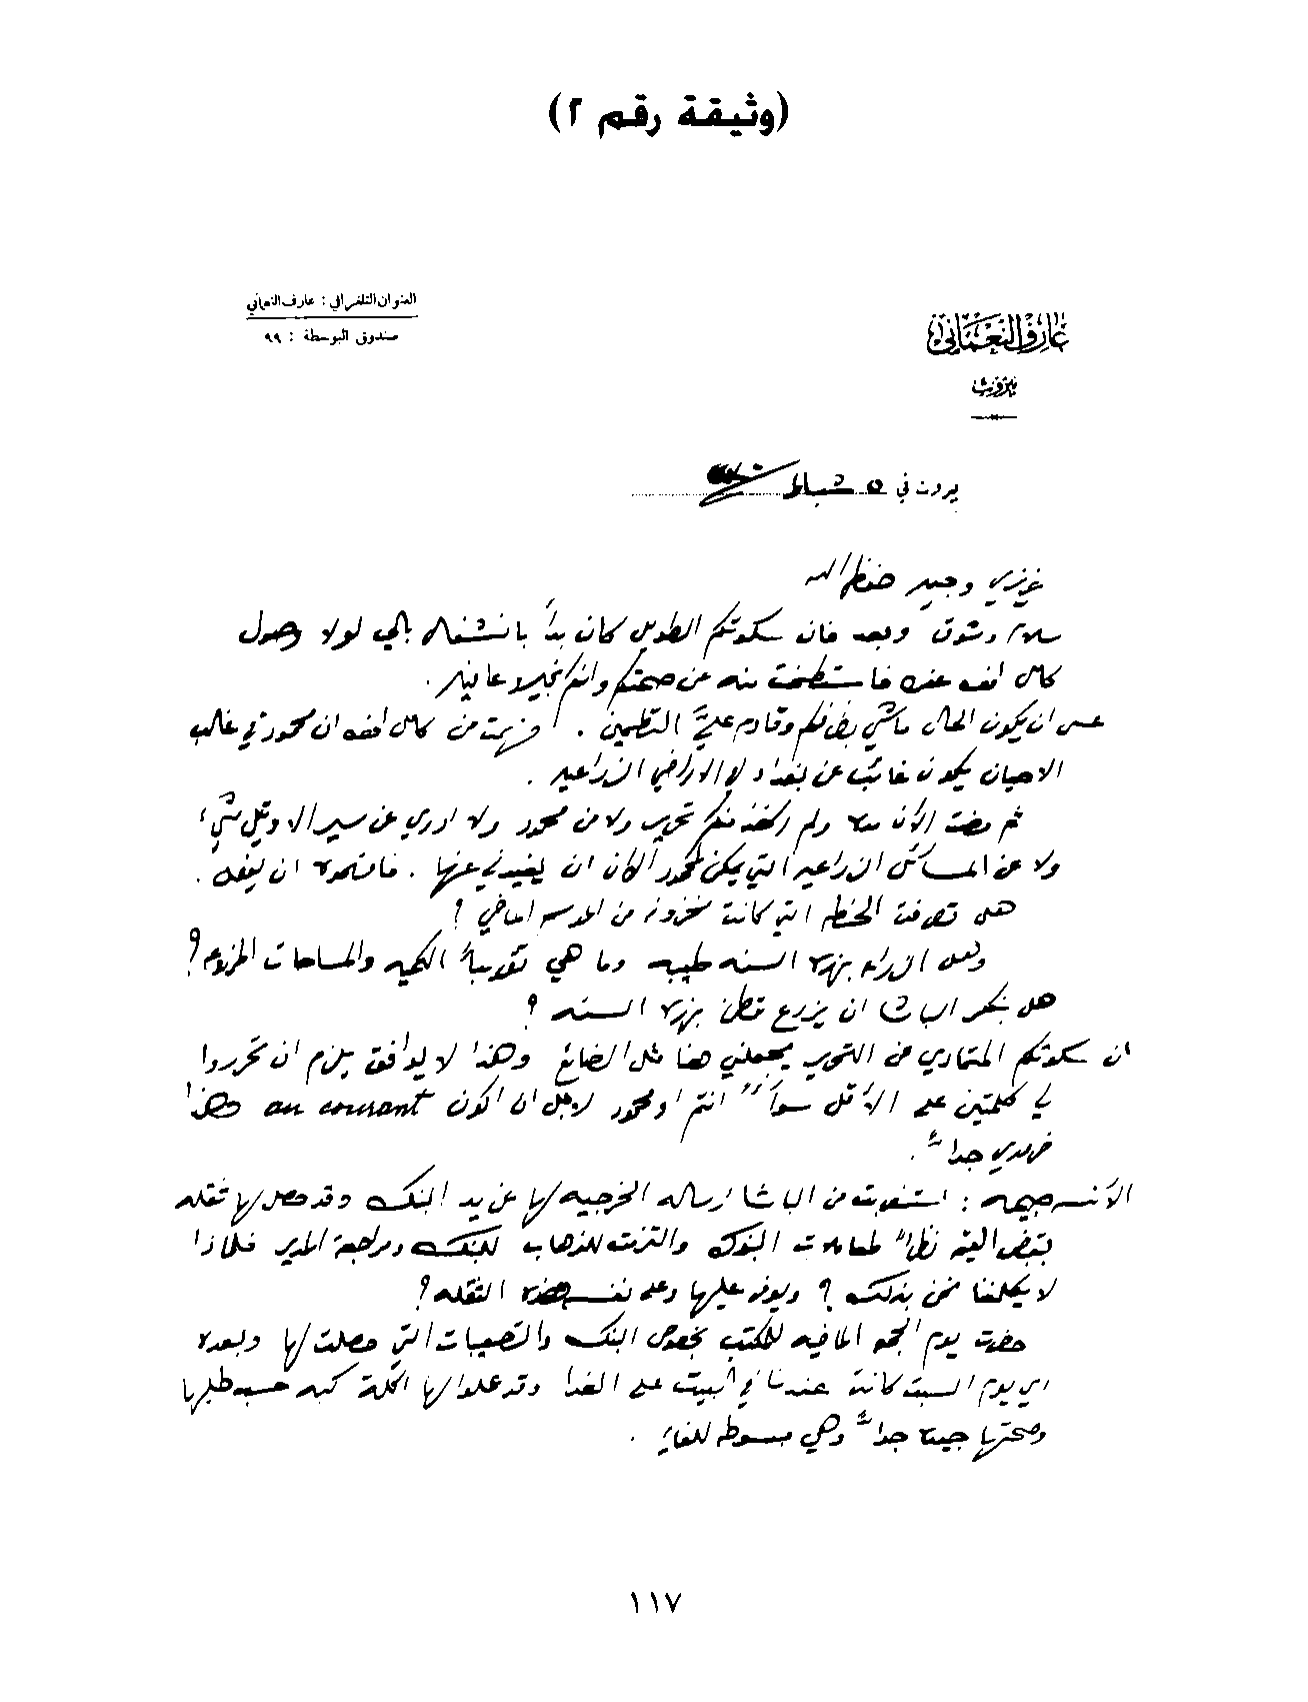 (وثيقة رقم ٢)
العنوان التلغرافي : عارف النعماني
صندوق البوسطة : ٩٩
عارف النعماني
بيروت
بيروت في ٥ شباط
عزيزي وجيه حفظه الله
سلام وشوق وبعد فان سكوتكم الطويل كان بدأ بانشغال بالي لولا وصول
كامل افندي فاستطلعت منه عن صحتكم وانكم بخير وعافيه .
عسى ان يكون الحال ماشي وقادم على التطمين . فهمت من كامل افندي ان محمود في غالب
الاحيان يكون غائب عن بغداد في الاراضي الزراعيه .
ثم مضت الآن مدة ولم آخذ منكم تحرير ولا من محمود ولا ادري عن سير الاوتيل شيء
ولا عن المسائل الزراعيه التي يمكن لمحمود الآن ان يفيدني عنها . فارجوه ان يفعل .
هل تصرفت الحنطه التي كانت مخزونه من الموسم الماضي ؟
وهل الزراعه بهذه السنه طيبه وما هي تقريباً الكميه والمساحات المزروعه ؟
هل بفكر الباشا ان يزرع قطن بهذه السنه ؟
ان سكوتكم المتمادي من التحرير يجعلني هنا مثل الضائع وهذا لا يوافق يلزم ان تحرروا
لي كلمتين على الأقل سواءً انتم او محمود لاجل ان اكون au courant وهذا
ضروري جداً .
الآنسه : استغربت من الباشا ارساله الخرجيه لها عن يد البنك وقد حصل لها ثقله
بقبض القيمه نظراً لمعاملات البنوك والتزمت للذهاب للبنك ومراجعة المدير فلماذا
لا يكلفنا نحن بذلك ؟ ويوفر عليها وعلى نفسه هذه الثقله ؟
حضرت يوم الجمعه الماضيه للمكتب بخصوص البنك والتصعيبات التي حصلت لها وبعده
اي يوم السبت كانت عندنا في البيت على الغدا وقد عملوا لها اكلة كبه حسب طلبها
وصحتها جيده جداً وهي مبسوطه للغايه .
١١٧